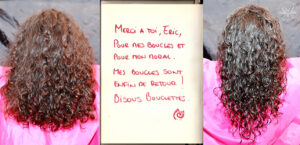 MERCI A TOI, ERIC,
POUR MES BOUCLES ET
POUR MON MORAL.
MES BOUCLES SONT
ENFIN DE RETOUR !
BISOUS BOUCLETTES.